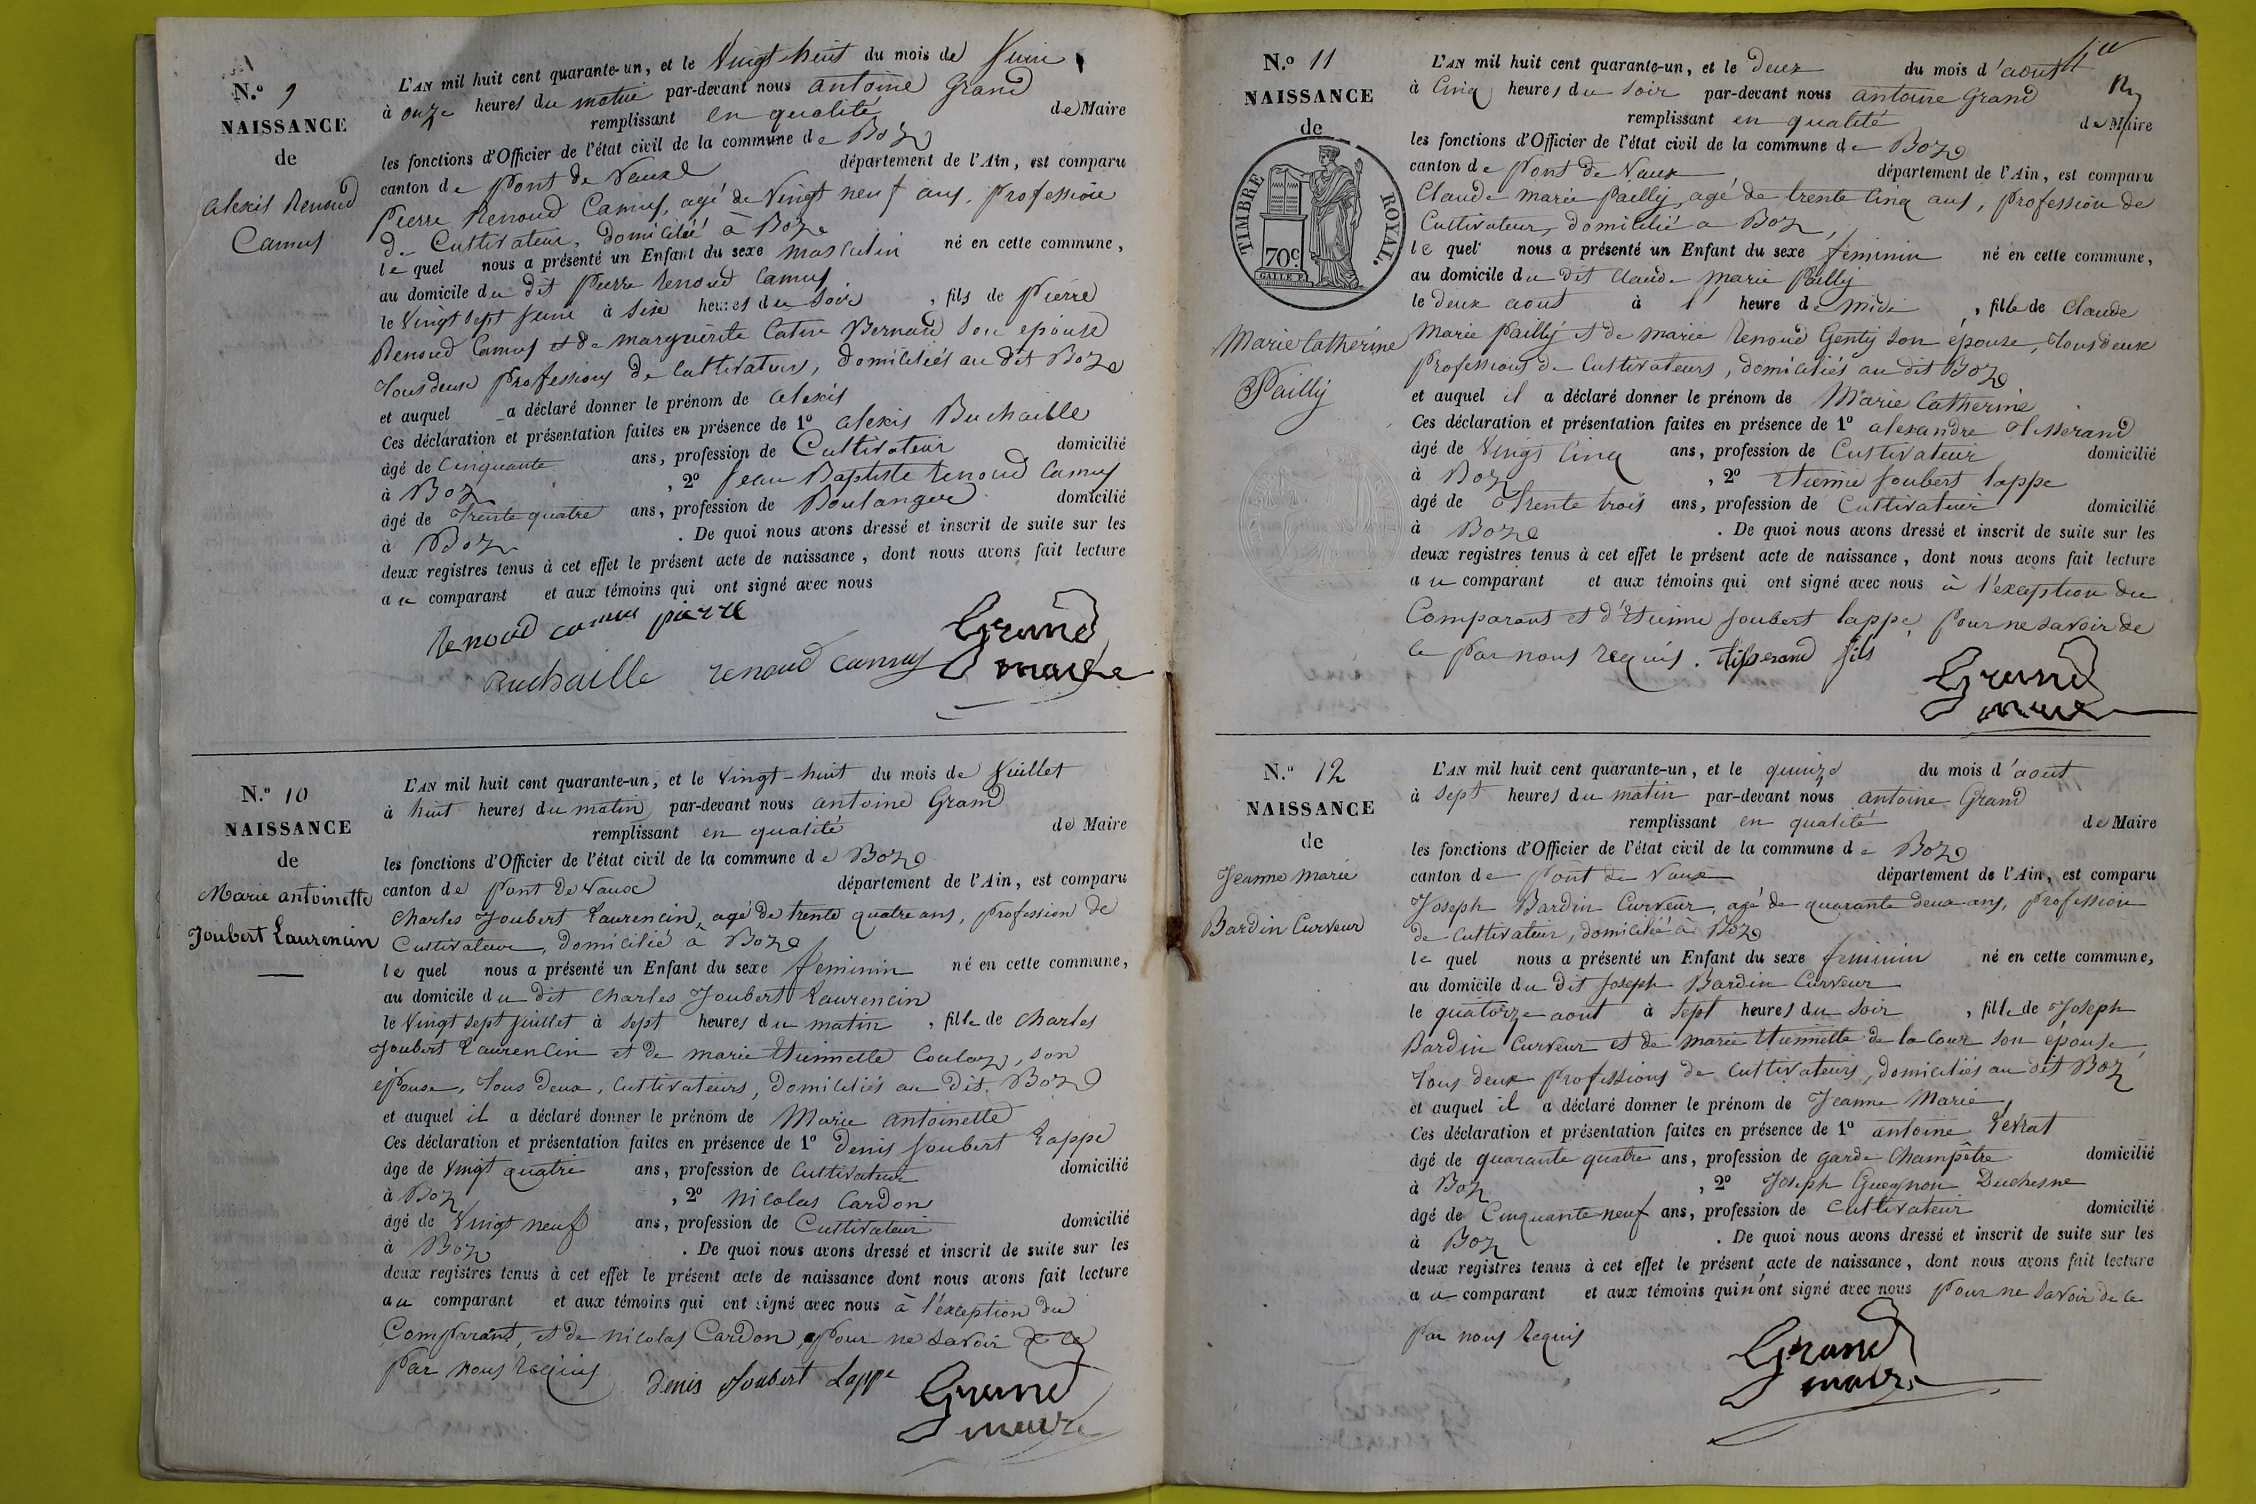 N.o 9
NAISSANCE
de
alexis Renoud
Camus
L'AN mil huit cent quarante-un, et le Vingt-huit du mois de Juin
à onze heures du matin par-devant nous antoine Grand
remplissant en qualité de Maire
les fonctions d'Officier de l'état civil de la commune de Boz
canton de Pont de Vaux département de l'Ain, est comparu
Pierre Renoud Camus, agé de Vingt neuf ans, profession
de Cultivateur, domicilié à Boz
le quel nous a présenté un Enfant du sexe masculin né en cette commune,
au domicile du dit Pierre Renoud Camus
le Vingt sept Juin à six heures du soir, fils de Pierre
Renoud Camus et de marguerite Catin Bernard son épouse
tous deux professions de cultivateurs, domiciliés au dit Boz
et auquel a déclaré donner le prénom de alexis
Ces déclaration et présentation faites en présence de 1o alexis Buchaille
âgé de Cinquante ans, profession de Cultivateur domicilié
à Boz, 2o Jean Baptiste Renoud Camus
âgé de Trente quatre ans, profession de Boulanger domicilié
à Boz. De quoi nous avons dressé et inscrit de suite sur les
deux registres tenus à cet effet le présent acte de naissance, dont nous avons fait lecture
au comparant et aux témoins qui ont signé avec nous
Renoud camus pierre
Buchaille renoud camus Grand
maire
N.o 10
NAISSANCE
de
Marie antoinette
Joubert Laurencin
L'AN mil huit cent quarante-un, et le Vingt-huit du mois de Juillet
à huit heures du matin par-devant nous antoine Grand
remplissant en qualité de Maire
les fonctions d'Officier de l'état civil de la commune de Boz
canton de Pont de Vaux département de l'Ain, est comparu
Charles Joubert Laurencin, agé de trente quatre ans, profession de
Cultivateur, domicilié à Boz
le quel nous a présenté un Enfant du sexe feminin né en cette commune,
au domicile du dit Charles Joubert Laurencin
le Vingt sept Juillet à sept heures du matin, fille de Charles
Joubert Laurencin et de marie Etiennette Coulas, son
épouse, tous deux, cultivateurs, domiciliés au dit Boz
et auquel il a déclaré donner le prénom de Marie antoinette
Ces déclaration et présentation faites en présence de 1o Denis Joubert Lappe
âge de Vingt quatre ans, profession de Cultivateur domicilié
à Boz, 2o Nicolas Cardon
âgé de Vingt neuf ans, profession de Cultivateur domicilié
à Boz. De quoi nous avons dressé et inscrit de suite sur les
deux registres tenus à cet effet le présent acte de naissance dont nous avons fait lecture
au comparant et aux témoins qui ont signé avec nous à l'exception du
Comparant, et de nicolas Cardon, pour ne savoir de ce
par nous requis Denis Joubert Lappe Grand
maire
N.o 11
NAISSANCE
de
TIMBRE ROYAL.
70c
Marie Catherine
Pailly
L'AN mil huit cent quarante-un, et le Deux du mois d'aout
à Cinq heures du soir par-devant nous antoine Grand
remplissant en qualité de Maire
les fonctions d'Officier de l'état civil de la commune de Boz
canton de Pont de Vaux département de l'Ain, est comparu
Claude marie Pailly, agé de trente cinq ans, profession de
Cultivateur, domicilié à Boz,
le quel nous a présenté un Enfant du sexe féminin né en cette commune,
au domicile du dit Claude marie Pailly
le deux aout à 1 heure de midi, fille de Claude
Marie Pailly et de marie Renoud Genty son épouse, tous deux
professions de Cultivateurs, domiciliés au dit Boz
et auquel il a déclaré donner le prénom de Marie Catherine
Ces déclaration et présentation faites en présence de 1o alexandre Tisserand
âgé de Vingt Cinq ans, profession de Cultivateur domicilié
à Boz, 2o Etienne Joubert Lappe
âgé de Trente trois ans, profession de Cultivateur domicilié
à Boz. De quoi nous avons dressé et inscrit de suite sur les
deux registres tenus à cet effet le présent acte de naissance, dont nous avons fait lecture
au comparant et aux témoins qui ont signé avec nous à l'exception du
Comparant et d'Etienne Joubert Lappe, pour ne savoir de
ce par nous requis. tisserand fils Grand
maire
N.o 12
NAISSANCE
de
Jeanne Marie
Bardin Curveur
L'AN mil huit cent quarante-un, et le quinze du mois d'aout
à sept heures du matin par-devant nous antoine Grand
remplissant en qualité de Maire
les fonctions d'Officier de l'état civil de la commune de Boz
canton de Pont de Vaux département de l'Ain, est comparu
Joseph Bardin Curveur, agé de quarante deux ans, profession
de cultivateur, domicilié à Boz
le quel nous a présenté un Enfant du sexe feminin né en cette commune,
au domicile du dit Joseph Bardin Curveur
le quatorze aout à sept heures du soir, fille de Joseph
Bardin Curveur et de marie Etiennette de la Cour son épouse,
tous deux professions de Cultivateurs, domiciliés au dit Boz
et auquel il a déclaré donner le prénom de Jeanne Marie,
Ces déclaration et présentation faites en présence de 1o antoine Levrat
âgé de quarante quatre ans, profession de garde Champêtre domicilié
à Boz, 2o Joseph Guegnon Duchesne
âgé de Cinquante neuf ans, profession de Cultivateur domicilié
à Boz. De quoi nous avons dressé et inscrit de suite sur les
deux registres tenus à cet effet le présent acte de naissance, dont nous avons fait lecture
au comparant et aux témoins qui n'ont signé avec nous pour ne savoir de ce
par nous requis Grand
maire